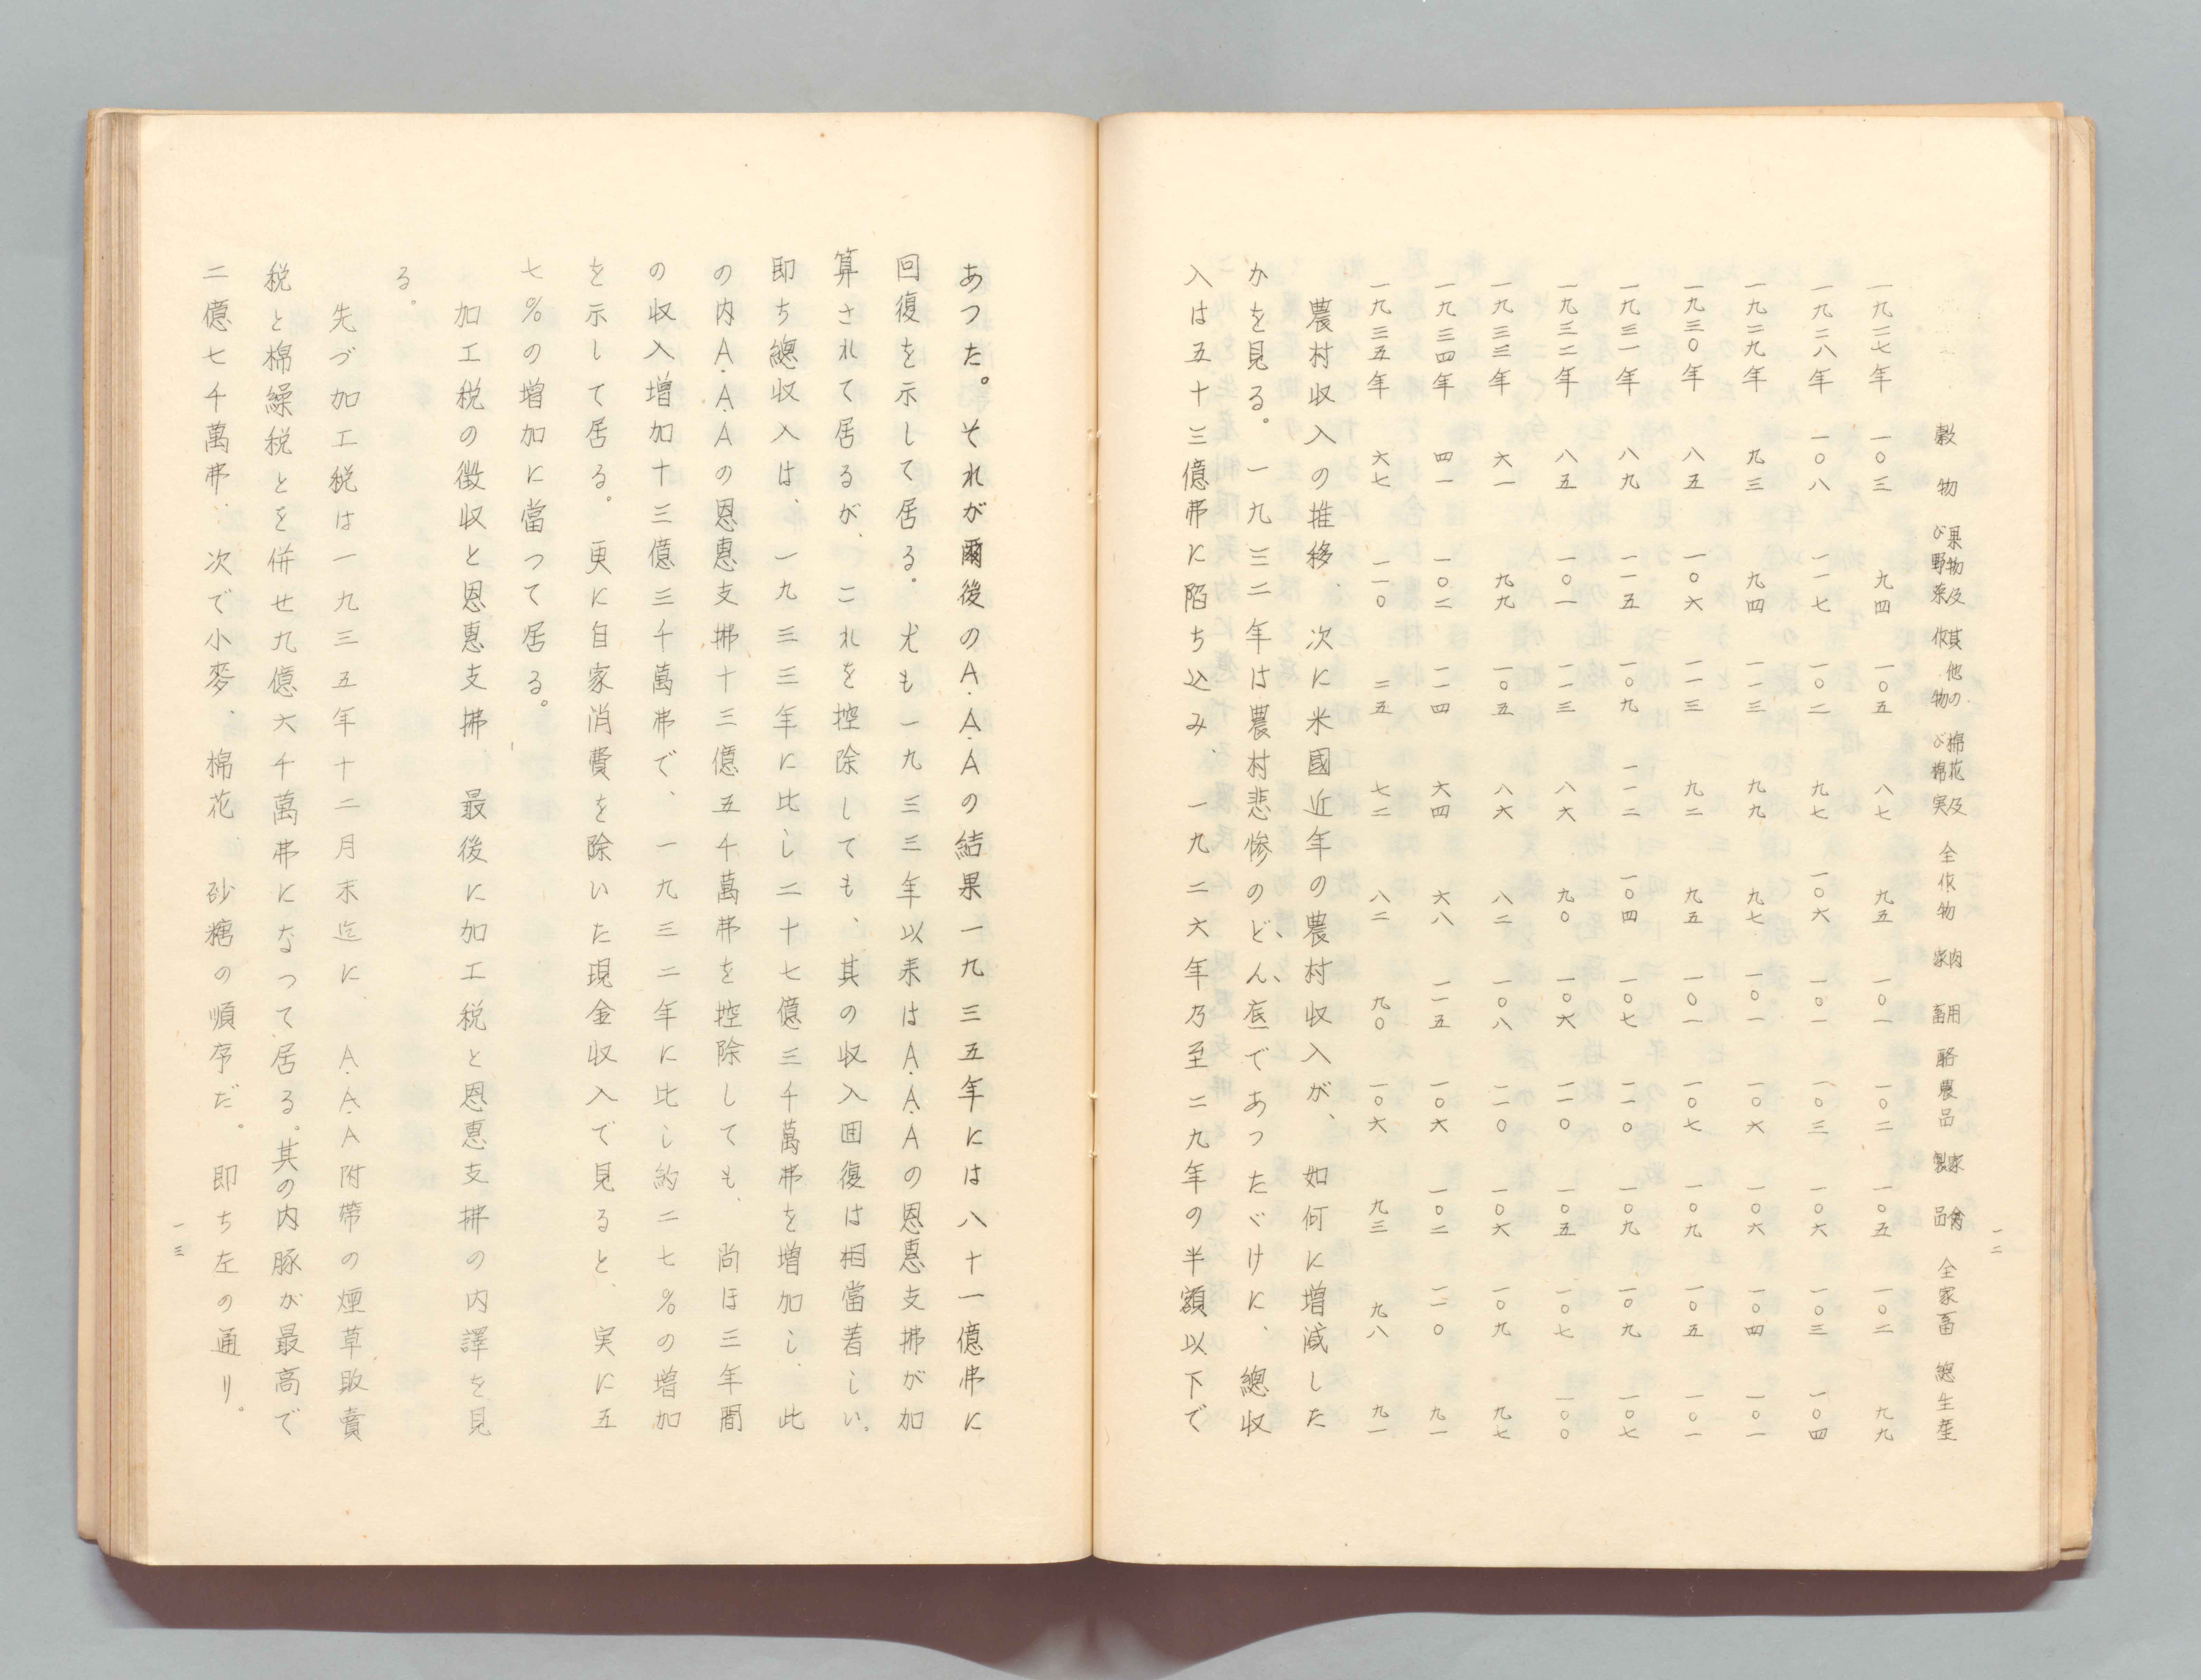 一二
穀物 果物及び野菜 其他の作物 棉花及び棉実 全作物 肉用家畜 酪農品 家禽製品 全家畜 總生産
一九二七年 一〇三 九四 一〇五 八七 九五 一〇一 一〇二 一〇五 一〇二 九九
一九二八年 一〇八 一一七 一〇二 九七 一〇六 一〇一 一〇三 一〇六 一〇三 一〇四
一九二九年 九三 九四 一一三 九九 九七 一〇一 一〇六 一〇六 一〇四 一〇一
一九三〇年 八五 一〇六 一一三 九二 九五 一〇一 一〇七 一〇九 一〇五 一〇一
一九三一年 八九 一一五 一〇九 一一二 一〇四 一〇七 一一〇 一〇九 一〇九 一〇七
一九三二年 八五 一〇一 一一三 八六 九〇 一〇六 一一〇 一〇五 一〇七 一〇〇
一九三三年 六一 九九 一〇五 八六 八二 一〇八 一一〇 一〇六 一〇九 九七
一九三四年 四一 一〇二 一一四 六四 六八 一一五 一〇六 一〇二 一一〇 九一
一九三五年 六七 一一〇 三五 七二 八二 九〇 一〇六 九三 九八 九一
農村収入の推移、次に米國近年の農村収入が、如何に増減した
かを見る。一九三二年は農村悲惨のどん底であつただけに、總収
入は五十三億弗に陷ち込み、一九二六年乃至二九年の半額以下で
あつた。それが爾後のA.A.Aの結果一九三五年には八十一億弗に
回復を示して居る。尤も一九三三年以来はA.A.Aの恩惠支拂が加
算されて居るが、これを控除しても、其の収入囬復は相當着しい。
即ち總収入は、一九三三年に比し二十七億三千萬弗を増加し、此
の内A.A.Aの恩惠支拂十三億五千萬弗を控除しても、尚ほ三年間
の収入増加十三億三千萬弗で、一九三二年に比し約二七％の増加
を示して居る。更に自家消費を除いた現金収入で見ると、実に五
七％の増加に當つて居る。
加工税の徴収と恩惠支拂、最後に加工税と恩惠支拂の内譯を見
る。
先づ加工税は一九三五年十二月末迄に、A.A.A附帶の煙草販賣
税と棉繰税とを併せ九億六千萬弗になつて居る。其の内豚が最高で
二億七千萬弗、次で小麥、棉花、砂糖の順序だ。即ち左の通り。
一三